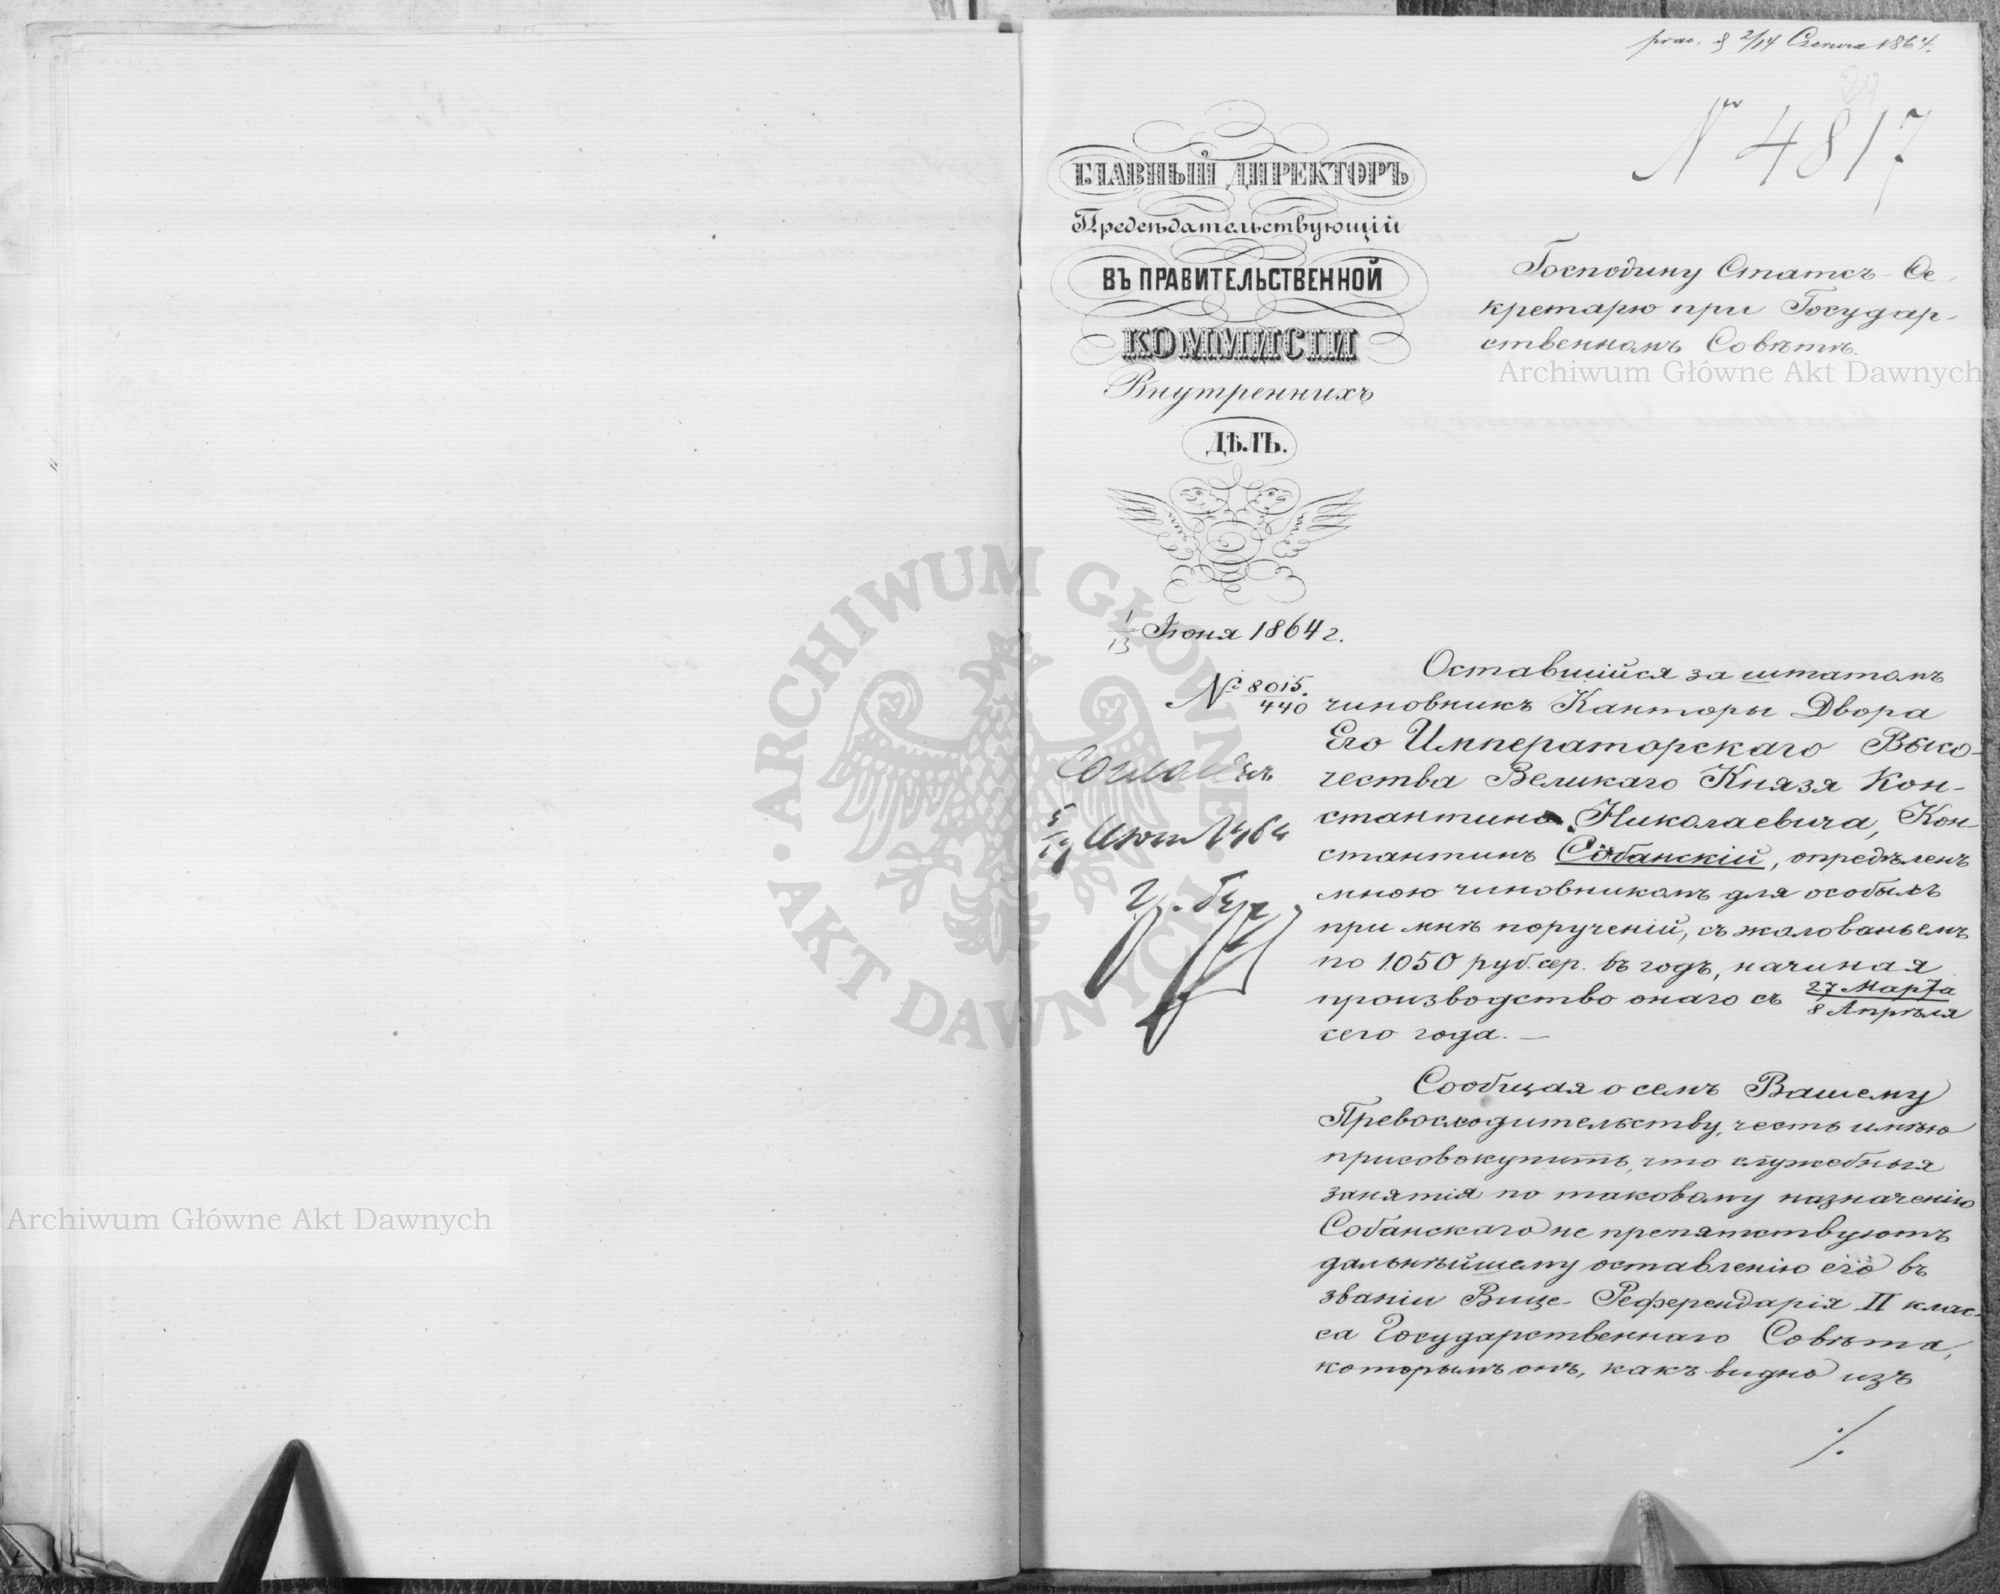 2/14 Czerwca 1864.
N 4817
ГЛАВНЫЙ ДИРЕКТОРЪ
Предсѣдательствующій
ВЪ ПРАВИТЕЛЬСТВЕННОЙ
КОММИСІИ
Внутреннихъ
ДѢЛЪ.
1/13 Іюня 1864 г.
№ 8015/440
Господину Статсъ-Се-
кретарю при Государ-
ственномъ Совѣтѣ.
Archiwum Główne Akt Dawnych
Согласенъ
Оставшійся за штатомъ
чиновникъ Канторы Двора
Его Императорскаго Высо-
чества Великаго Князя Кон-
стантина Николаевича, Кон-
стантинъ Собанскій, опредѣленъ
мною чиновникомъ для особыхъ
при мнѣ порученій, съ жалованьемъ
по 1050 руб. сер. въ годъ, начиная
производство онаго съ 27 Марта/8 Апрѣля
сего года. —
Сообщая о семъ Вашему
Превосходительству, честь имѣю
присовокупить, что служебныя
занятія по таковому назначенію
Собанскаго не препятствуютъ
дальнѣйшему оставленію его въ
званіи Вице-Референдарія II клас-
са Государственнаго Совѣта,
которымъ онъ, какъ видно изъ
./.
ARCHIWUM GŁÓWNE · AKT DAWNYCH ·
Archiwum Główne Akt Dawnych